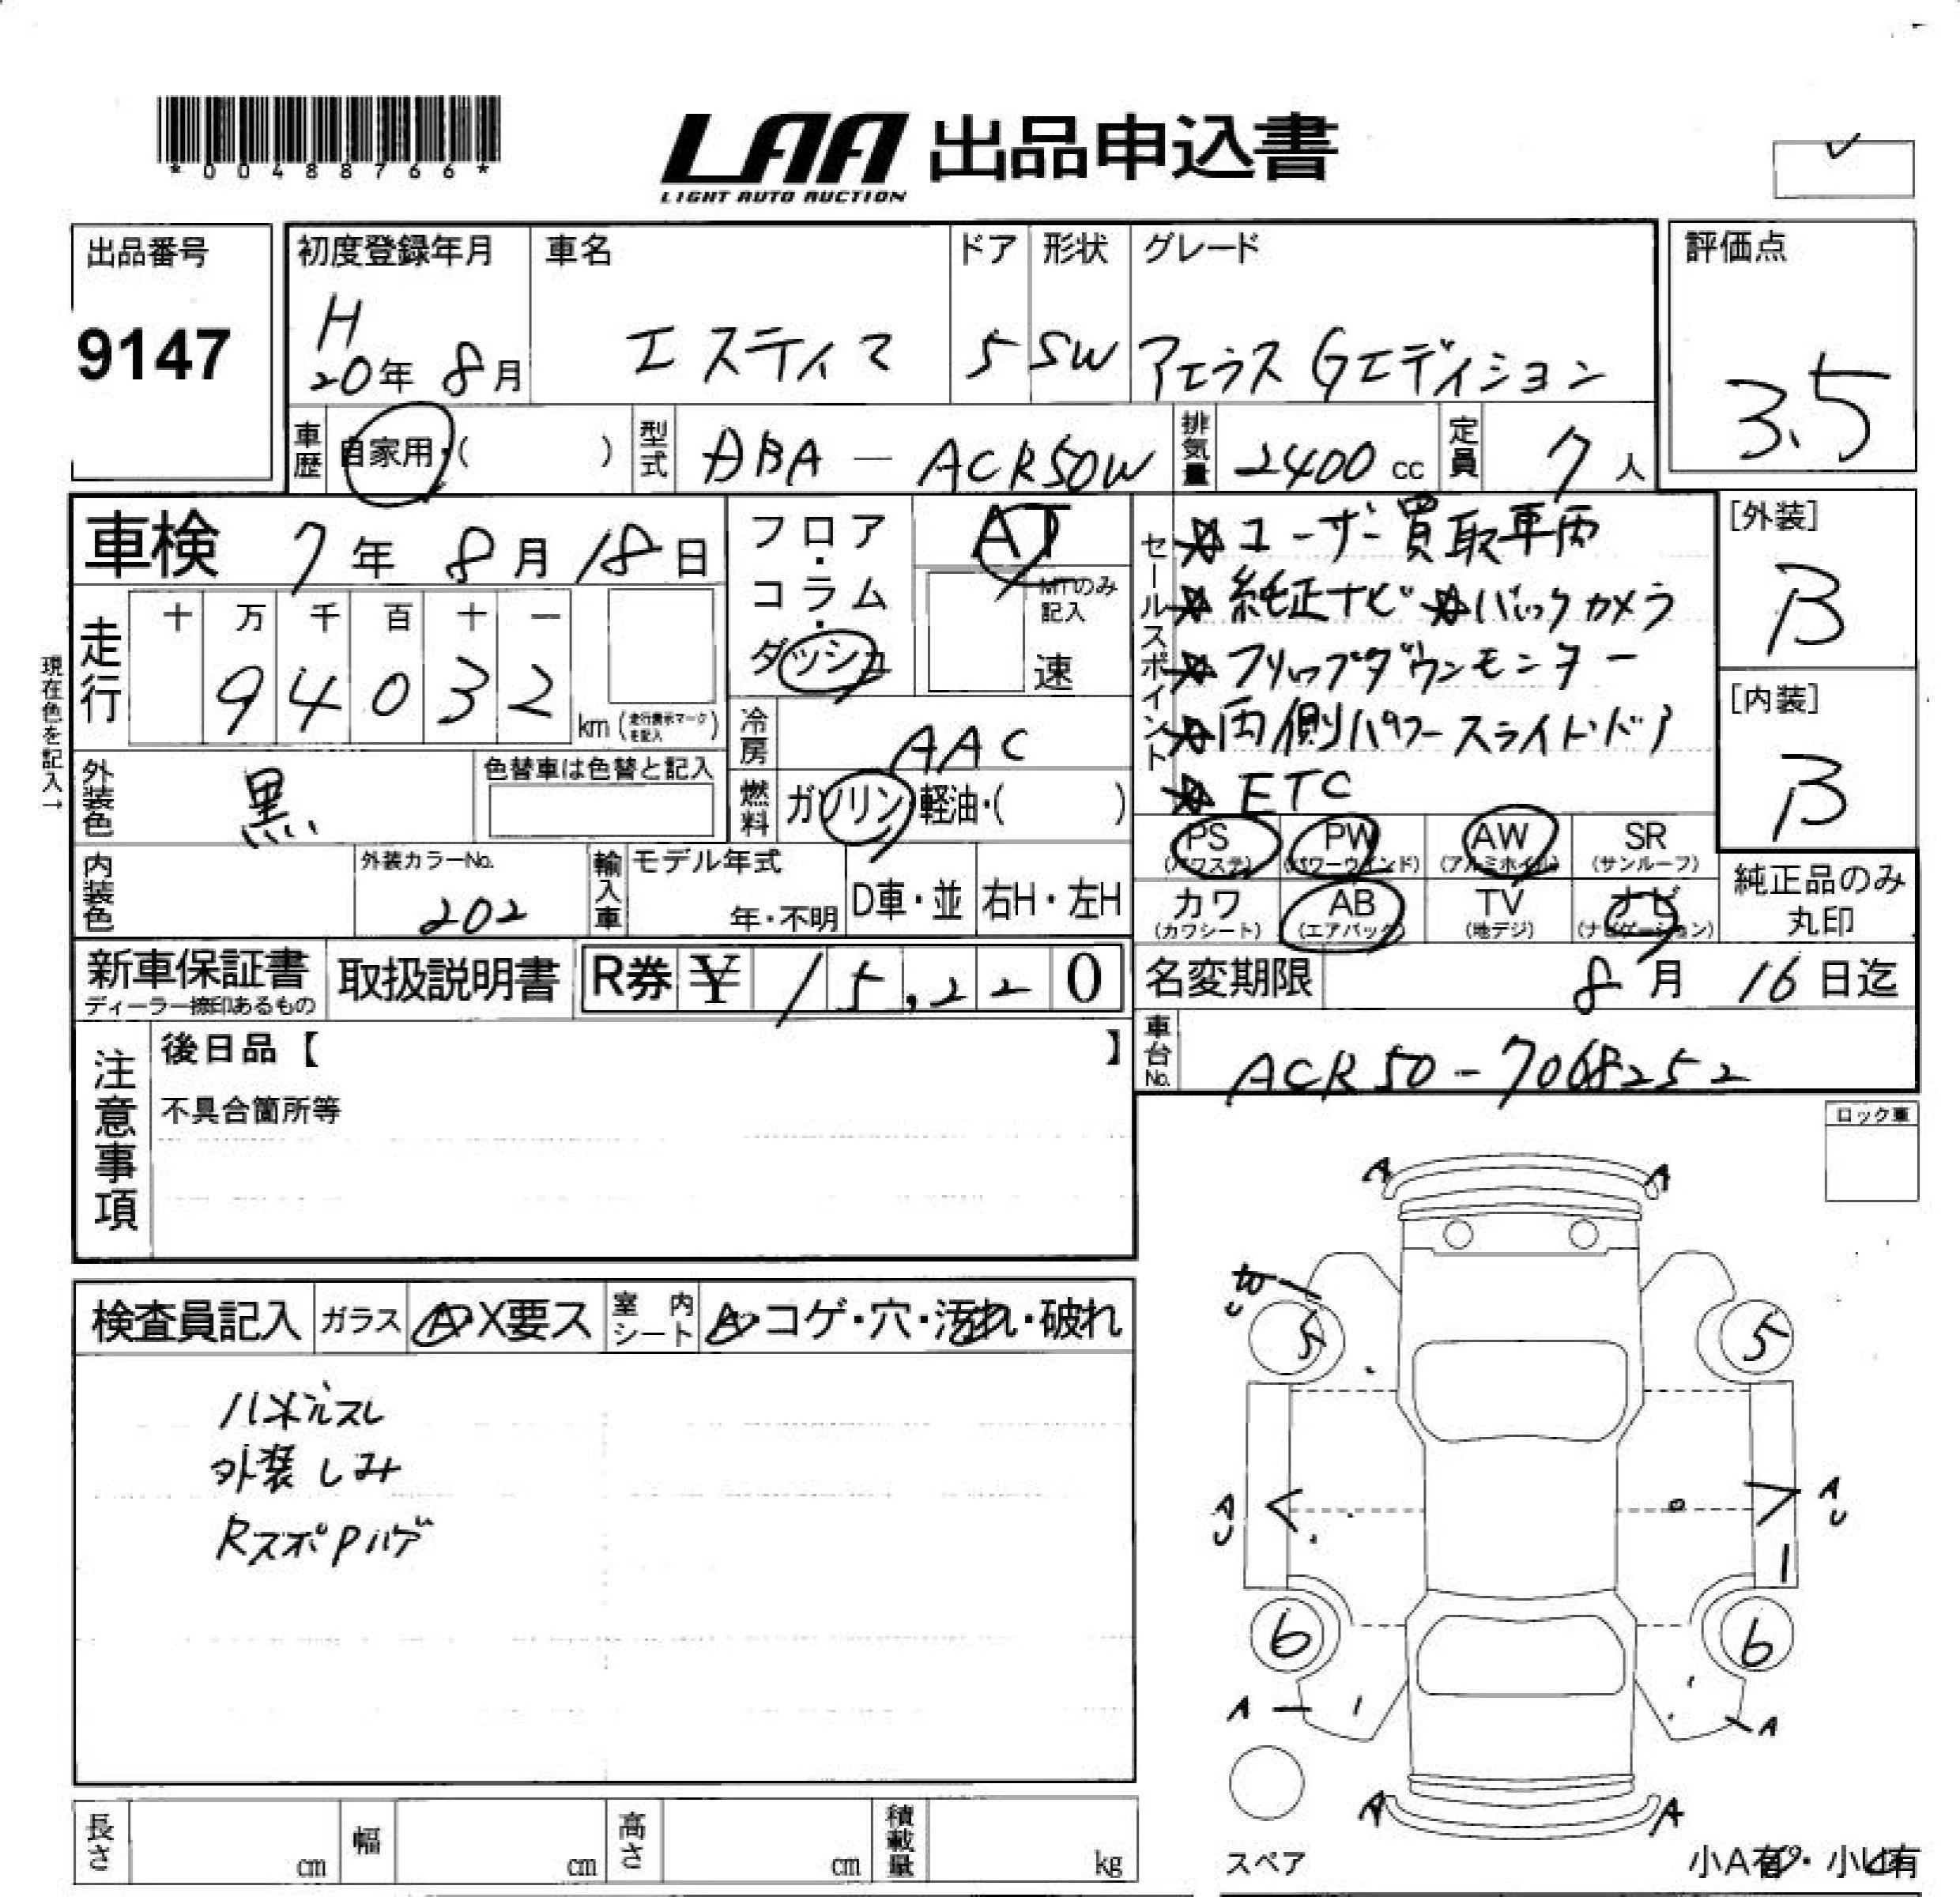 *00488766*
LAA 出品申込書
LIGHT AUTO AUCTION
出品番号
9147
初度登録年月
H
20年 8月
車名
エスティマ
ドア
5
形状
SW
グレード
アエラス Gエディション
評価点
3.5
車歴
自家用・( )
型式
DBA - ACR50W
排気量
2400 cc
定員
7 人
車検 7年 8月 18日
フロア・コラム・ダッシュ
AT
MTのみ記入
速
セールスポイント
☆ユーザー買取車両
☆純正ナビ ☆バックカメラ
☆フリップダウンモニター
☆両側パワースライドドア
☆ETC
[外装]
B
[内装]
B
現在色を記入→
走行
十 万 千 百 十 一
9 4 0 3 2
km (走行表示マークを記入)
冷房
AAC
外装色
黒
色替車は色替と記入
燃料
ガソリン・軽油・( )
PS
(パワステ)
PW
(パワーウインド)
AW
(アルミホイル)
SR
(サンルーフ)
カワ
(カワシート)
AB
(エアバック)
TV
(地デジ)
ナビ
(ナビゲーション)
純正品のみ
丸印
内装色
外装カラーNo.
202
輸入車
モデル年式
年・不明
D車・並
右H・左H
新車保証書
ディーラー捺印あるもの
取扱説明書
R券 ¥ 15,220
名変期限 8月 16日迄
車台No.
ACR50-7068252
注意事項
後日品【 】
不具合箇所等
ロック車
検査員記入
ガラス
A・X要ス
室内シート
A・コゲ・穴・汚れ・破れ
ハンドルスレ
外装しみ
RスポPハゲ
A A
5 5
A
U
A
U
1
6 6
A A
A A
スペア
小A有・小U有
長さ
cm
幅
cm
高さ
cm
積載量
kg